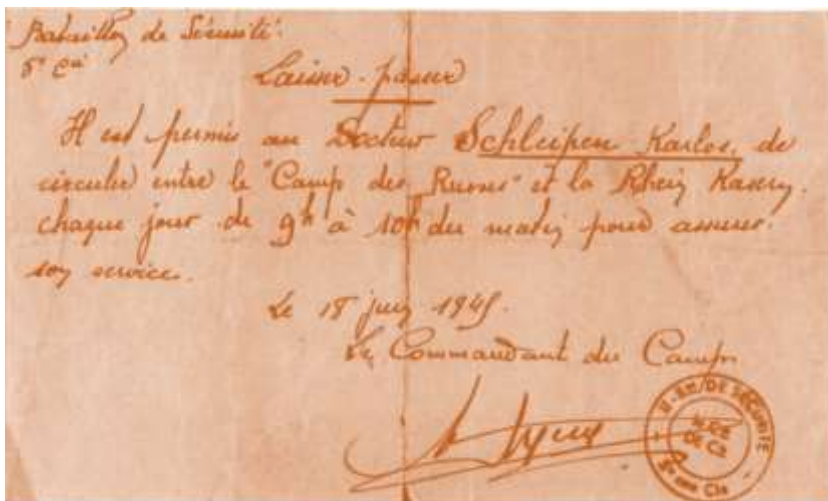 Bataillon de Sécurité.
5e Cie
Laisser-passer
Il est permis au Docteur Schleipen Karlos, de
circuler entre le "Camp des Russes" et la Rhein Kasern.
chaque jour de 9h à 10h du matin pour assurer.
son service.
Le 18 juin 1945.
Le Commandant du Camp.
DE SÉCURITÉ